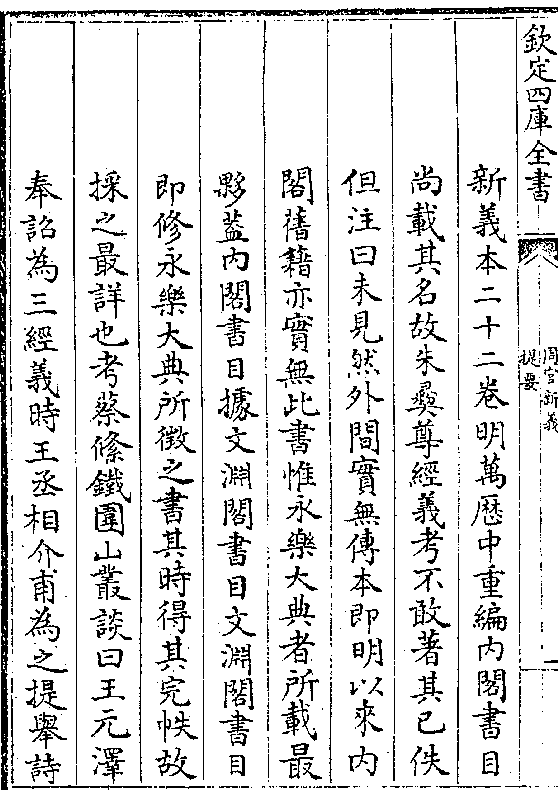 欽定四庫全書
周官新義
提要
一
新義本二十二卷明萬歷中重編內閣書目
尚載其名故朱彞尊經義考不敢著其已佚
但注曰未見然外間實無傳本即明以來內
閣舊籍亦實無此書惟永樂大典者所載最
夥蓋內閣書目據文淵閣書目文淵閣書目
即修永樂大典所徵之書其時得其完帙故
採之最詳也考蔡絛鐵圍山叢談曰王元澤
奉詔為三經義時王丞相介甫為之提舉詩